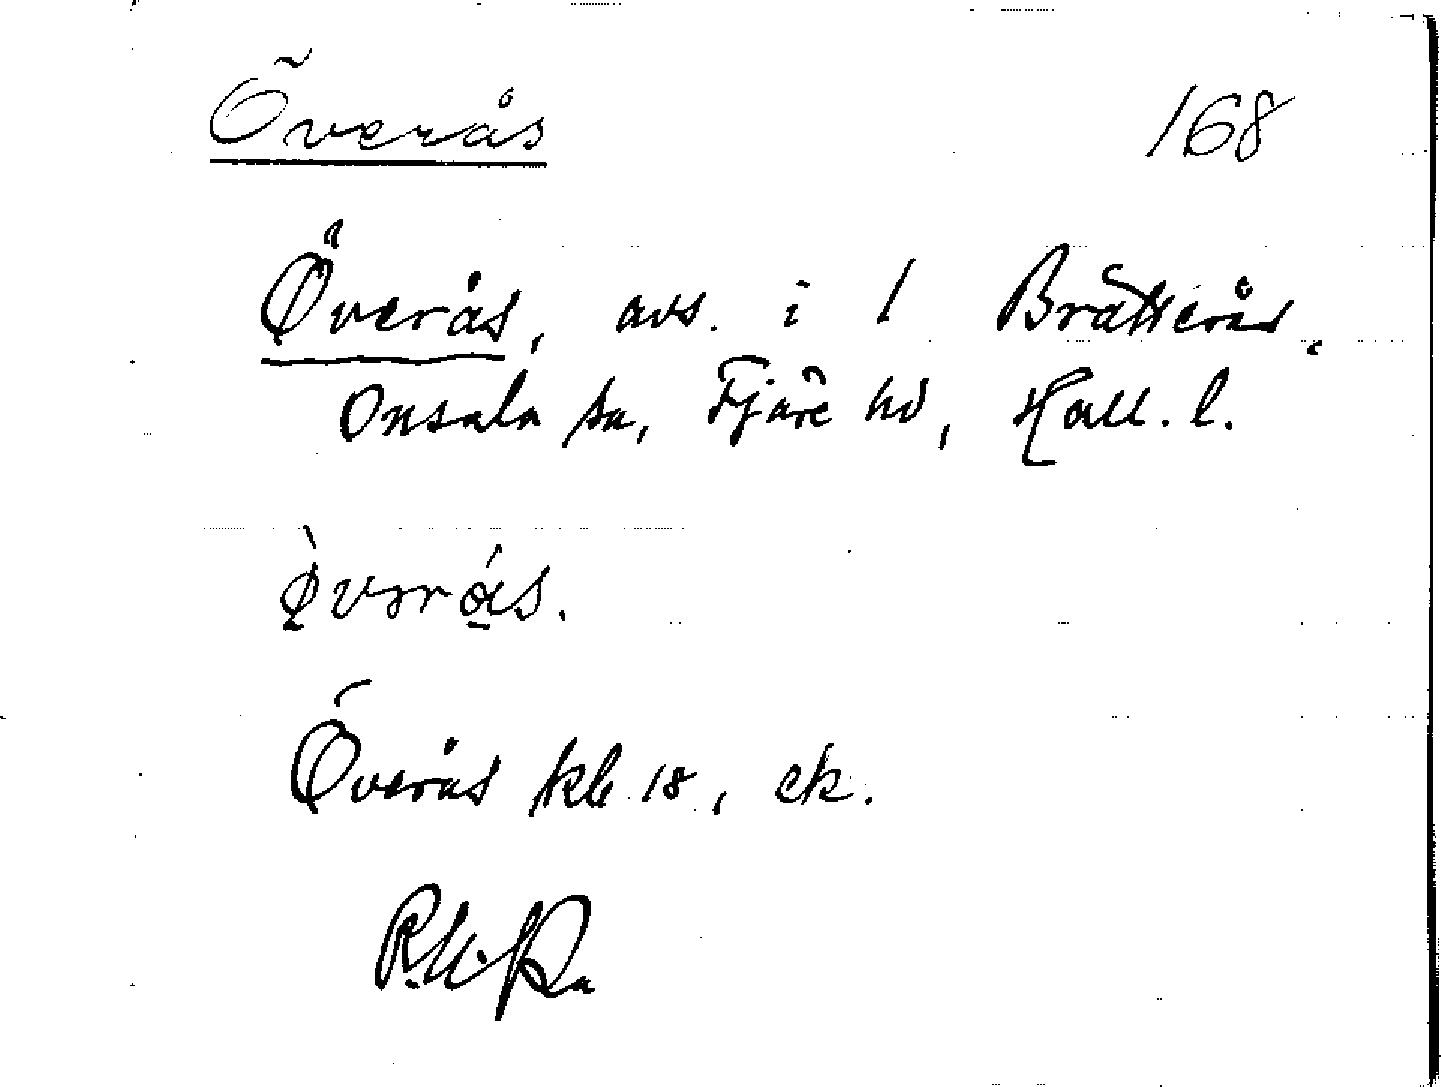 Överås 168
Överås, avs. i 1 Bratterås,
Onsala sn, Fjäre hd, Hall. l.
Överås kb 18, ek.